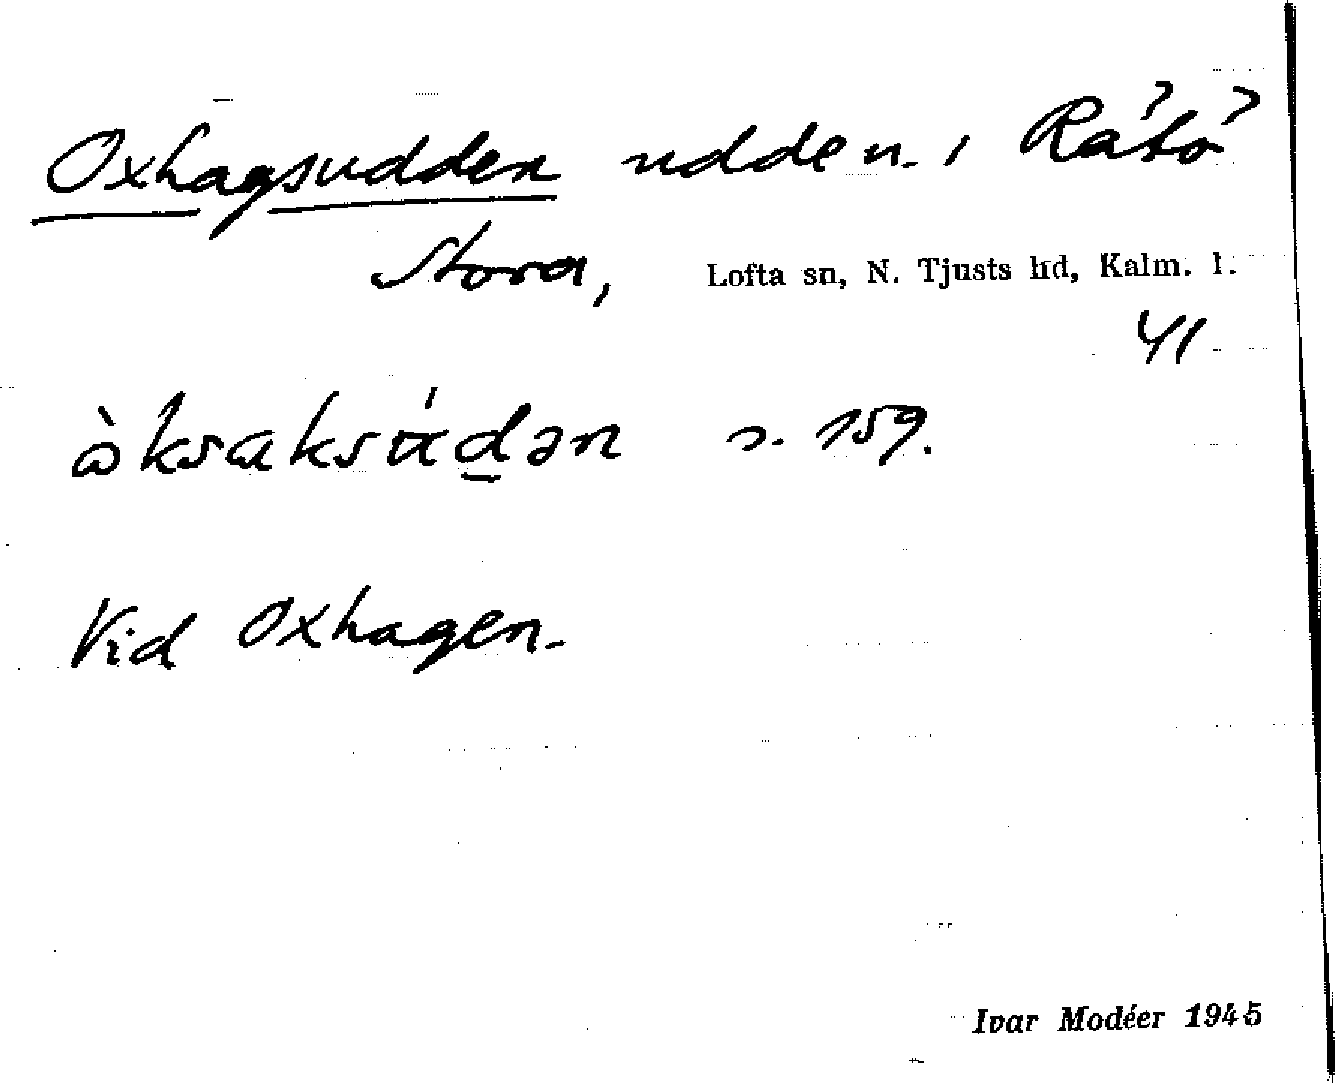 Oxhagsudden udden i Råtö
Stora, Lofta sn, N. Tjusts hd, Kalm. l.
41
s. 159.
Vid Oxhagen.
Ivar Modéer 1945